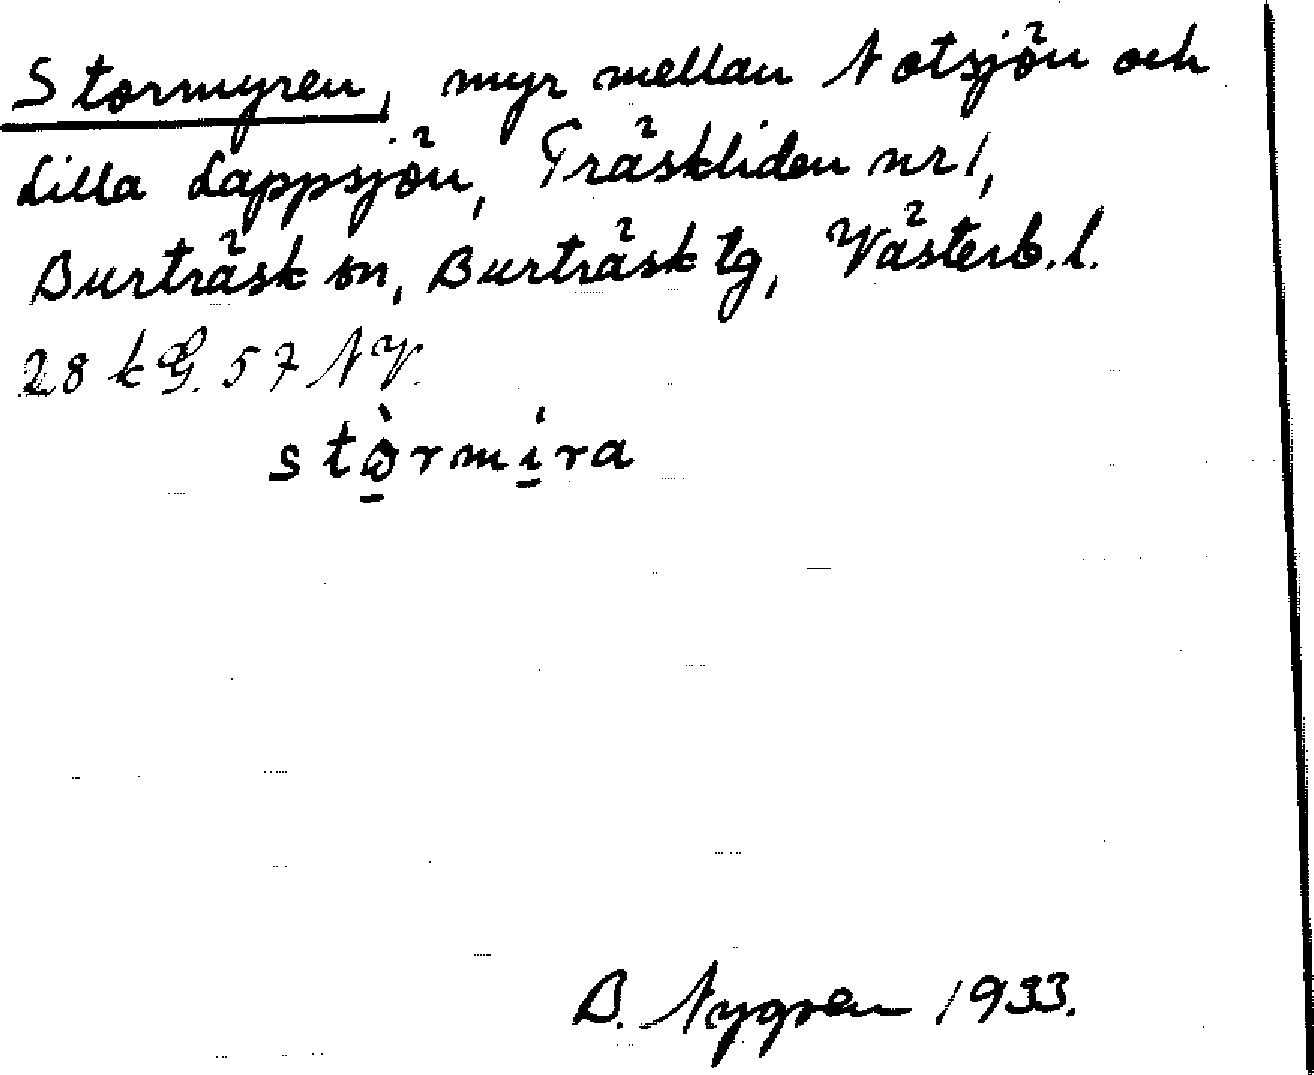 Stormyren, myr mellan Notsjön och
Lilla Lappsjön, Träskliden nr 1,
Burträsk sn, Burträsk tg, Västerb. l.
28 k G. 57 NV.
stò̠rmi̠ra
B. Nygren 1933.